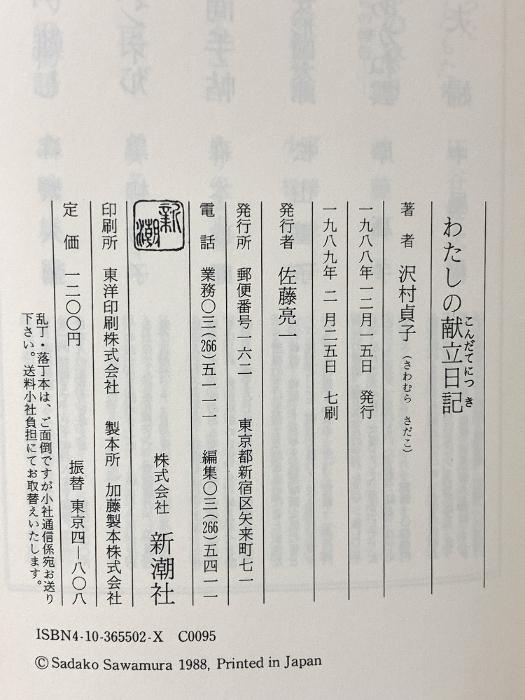 わたしの献立日記
こんだてにっき
著者 沢村貞子（さわむら さだこ）
一九八八年一二月一五日 発行
一九八九年 二月二五日 七刷
発行者 佐藤亮一
発行所 郵便番号一六二 東京都新宿区矢来町七一
電話 業務〇三(266)五一一一 編集〇三(266)五四一一
株式会社 新潮社
新潮
印刷所 東洋印刷株式会社 製本所 加藤製本株式会社
定価 一二〇〇円 振替 東京四―八〇八
乱丁・落丁本は、ご面倒ですが小社通信係宛お送り
下さい。送料小社負担にてお取替えいたします。
ISBN4-10-365502-X C0095
©Sadako Sawamura 1988, Printed in Japan